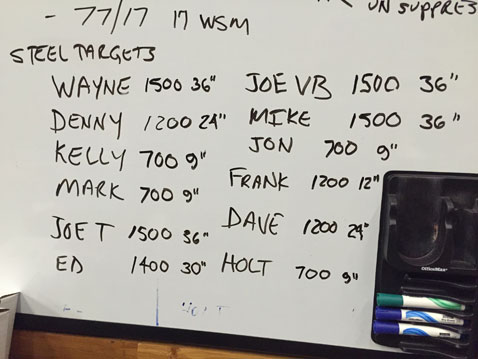 UNSUPPRES
- 77/17 17 WSM
STEEL TARGETS
WAYNE 1500 36"
DENNY 1200 24"
KELLY 700 9"
MARK 700 9"
JOE T 1500 36"
ED 1400 30"
JOE VB 1500 36"
MIKE 1500 36"
JON 700 9"
FRANK 1200 12"
DAVE 1200 24"
HOLT 700 9"
OfficeMax